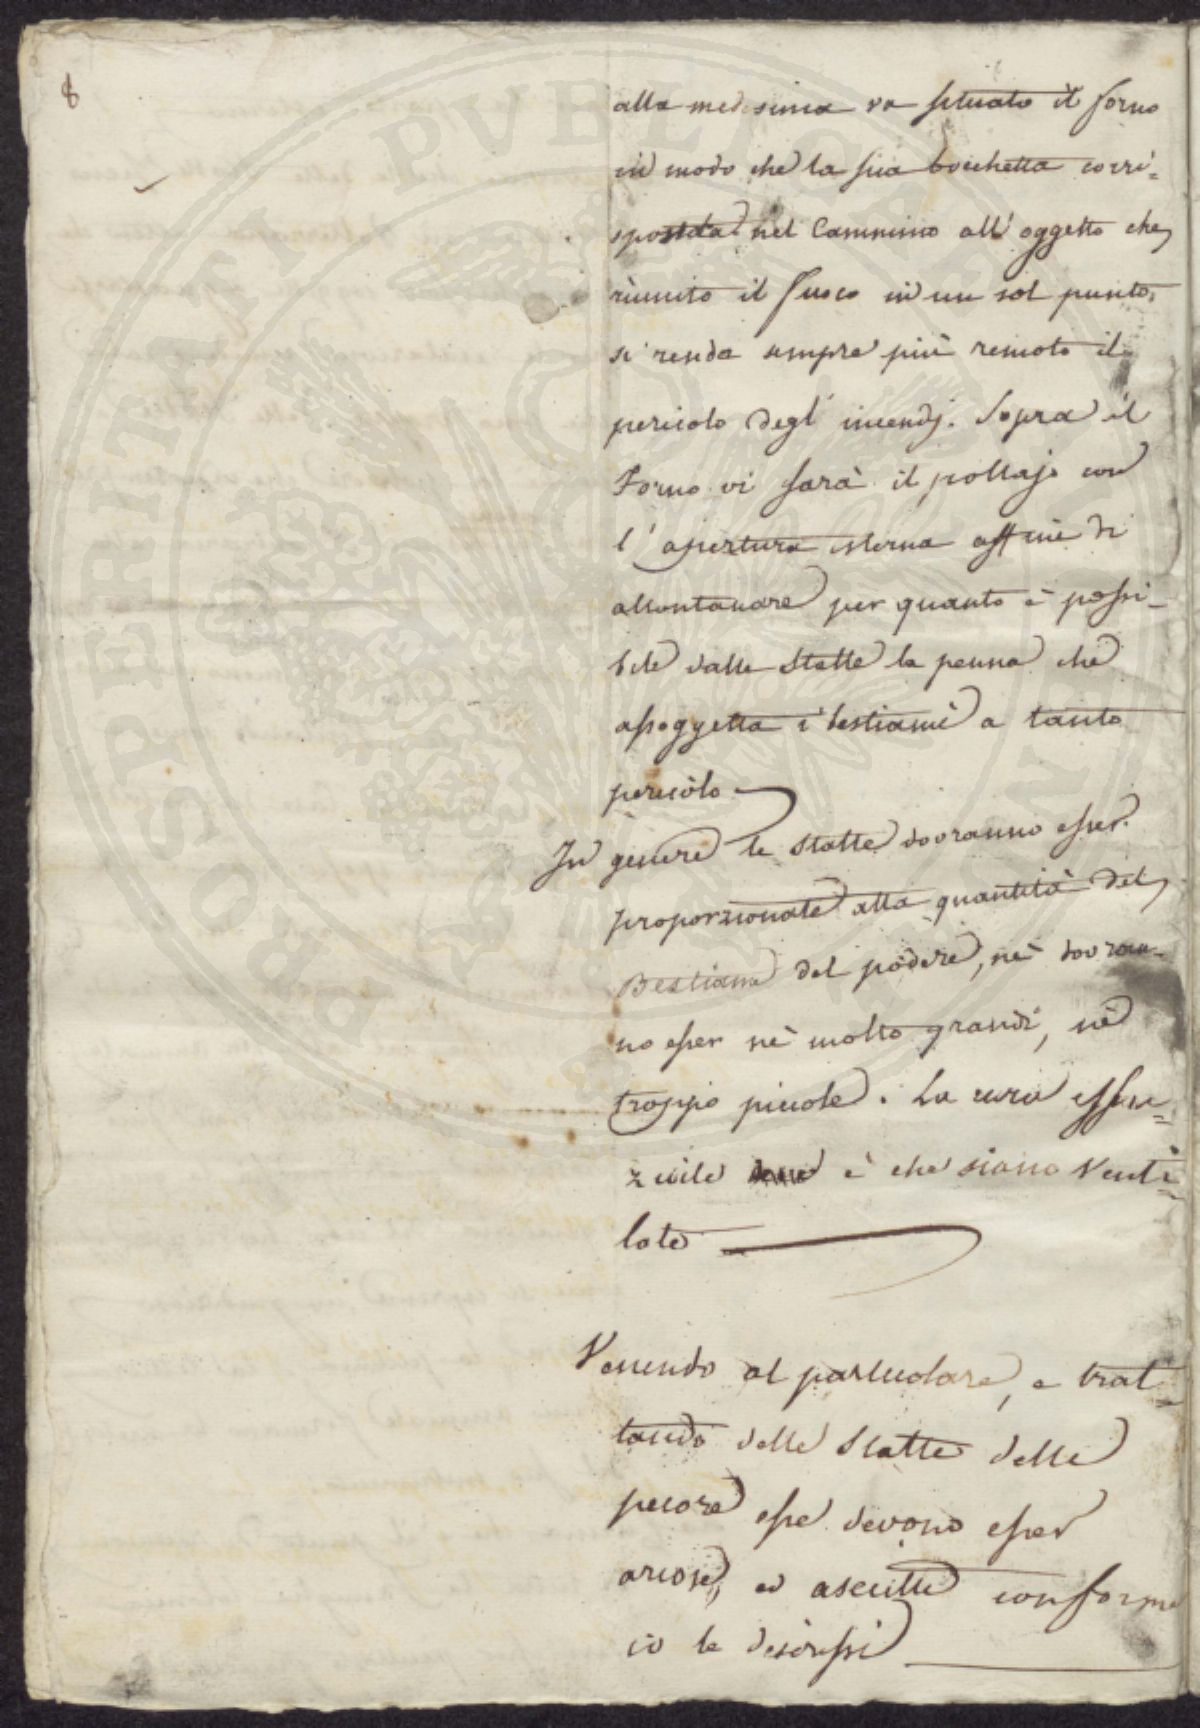 8
alla medesima va situato il forno
in modo che la sua bocchetta corri=
sponda nel Cammino all'oggetto che,
riunito il fuoco in un sol punto,
si renda sempre più remoto il
pericolo degl'incendj. Sopra il
Forno vi sarà il pollajo con
l'apertura esterna affine di
allontanare per quanto è possi-
bile dalle Stalle la penna che
assoggetta i bestiami a tanto
pericolo
In genere le stalle dovranno esser
proporzionate alla quantità del
Bestiame del podere, nè dovran-
no esser nè molto grandi, nè
troppo piccole. La cura essen=
ziale è che siano Venti=
late
Venendo al particolare, e trat=
tando delle Stalle delle
pecore esse devono esser
ariose, ed asciutte conforme
io le descrissi
PROSPERITATI PVBLICAE